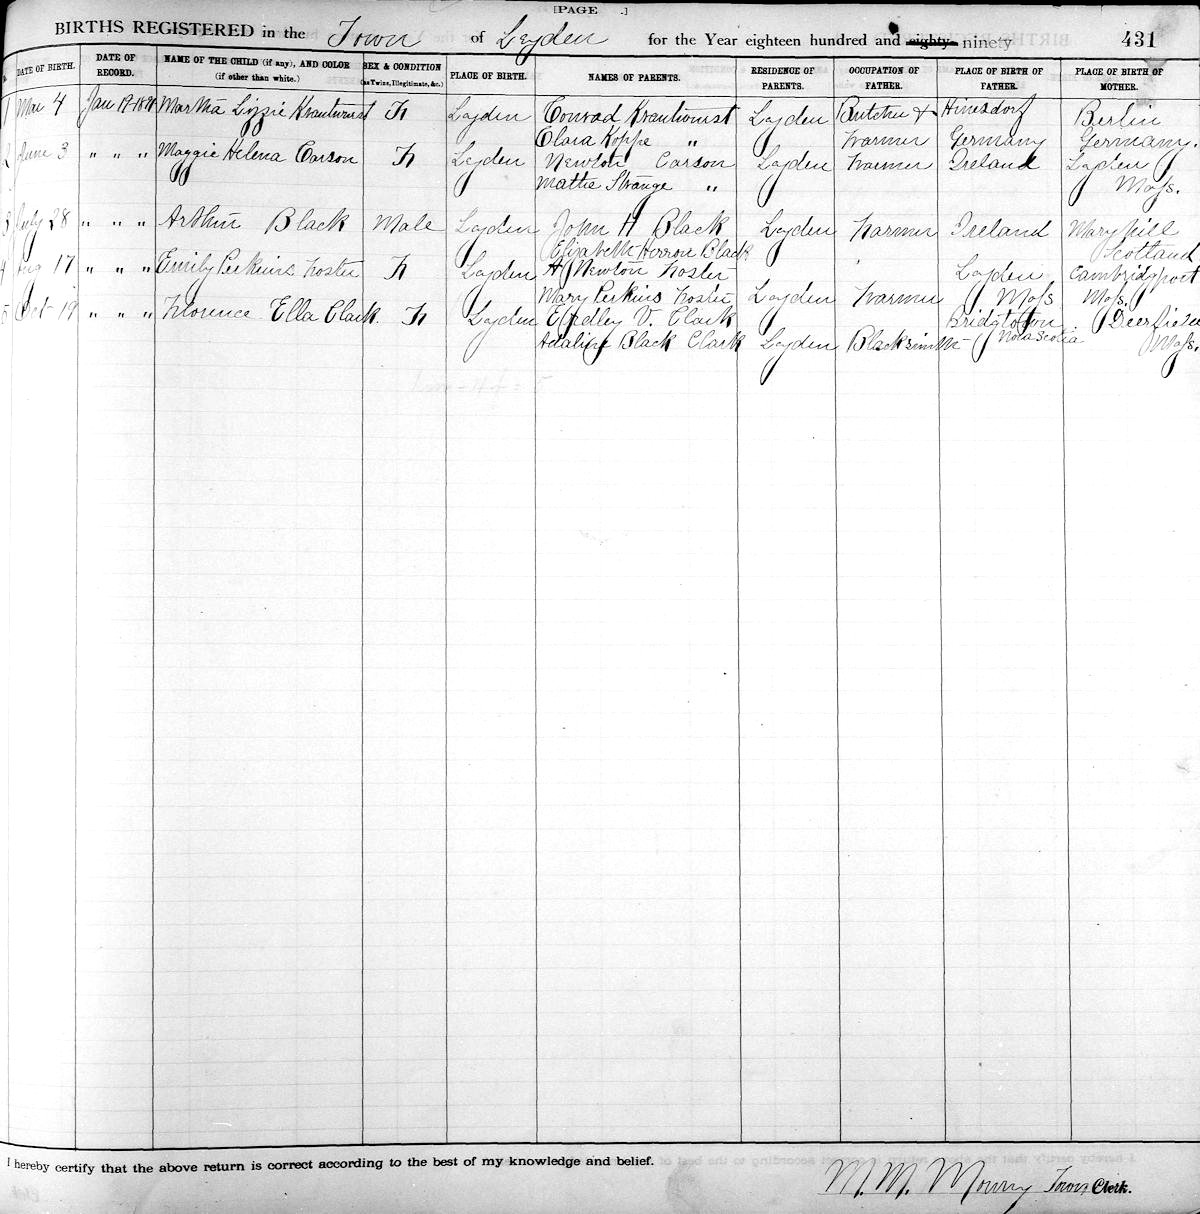 [PAGE .]
BIRTHS REGISTERED in the Town of Leyden for the Year eighteen hundred and eighty ninety 431
DATE OF BIRTH. DATE OF RECORD. NAME OF THE CHILD (if any), AND COLOR (if other than white.) SEX & CONDITION (as Twins, Illegitimate, &c.) PLACE OF BIRTH. NAMES OF PARENTS. RESIDENCE OF PARENTS. OCCUPATION OF FATHER. PLACE OF BIRTH OF FATHER. PLACE OF BIRTH OF MOTHER.
1 Mar 4 Jan 17-1891 Martha Lizzie Krautwurst F Leyden Conrad Krautwurst Leyden Butcher & Hinesdorf Berlin
Clara Koppe " Farmer Germany Germany.
2 June 3 " " " Maggie Helena Carson F Leyden Newton Carson Leyden Farmer Ireland Leyden
Mattie Strange " Mass.
3 July 28 " " " Arthur Black Male Leyden John H Black Leyden Farmer Ireland Maryhill
Elizabeth Herron Black Scotland
4 Aug 17 " " " Emily Perkins Foster F Leyden H Newton Foster Leyden Cambridgeport
Mary Perkins Foster Leyden Farmer Mass Mass.
5 Oct 19 " " " Florence Ella Clark. F Leyden Eardley V. Clark Bridgtown Deerfield
Adaline Black Clark Leyden Blacksmith Nova Scotia Mass.
I hereby certify that the above return is correct according to the best of my knowledge and belief.
M. M. Mowry Town Clerk.